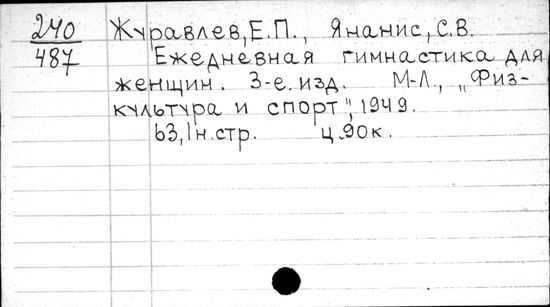 240 Журавлев, Е.П., Янанис, С.В.
487 Ежедневная гимнастика для
женщин. 3-е. изд. М-Л., „Физ-
культура и спорт", 1949.
63, 1н.стр. ц. 90к.